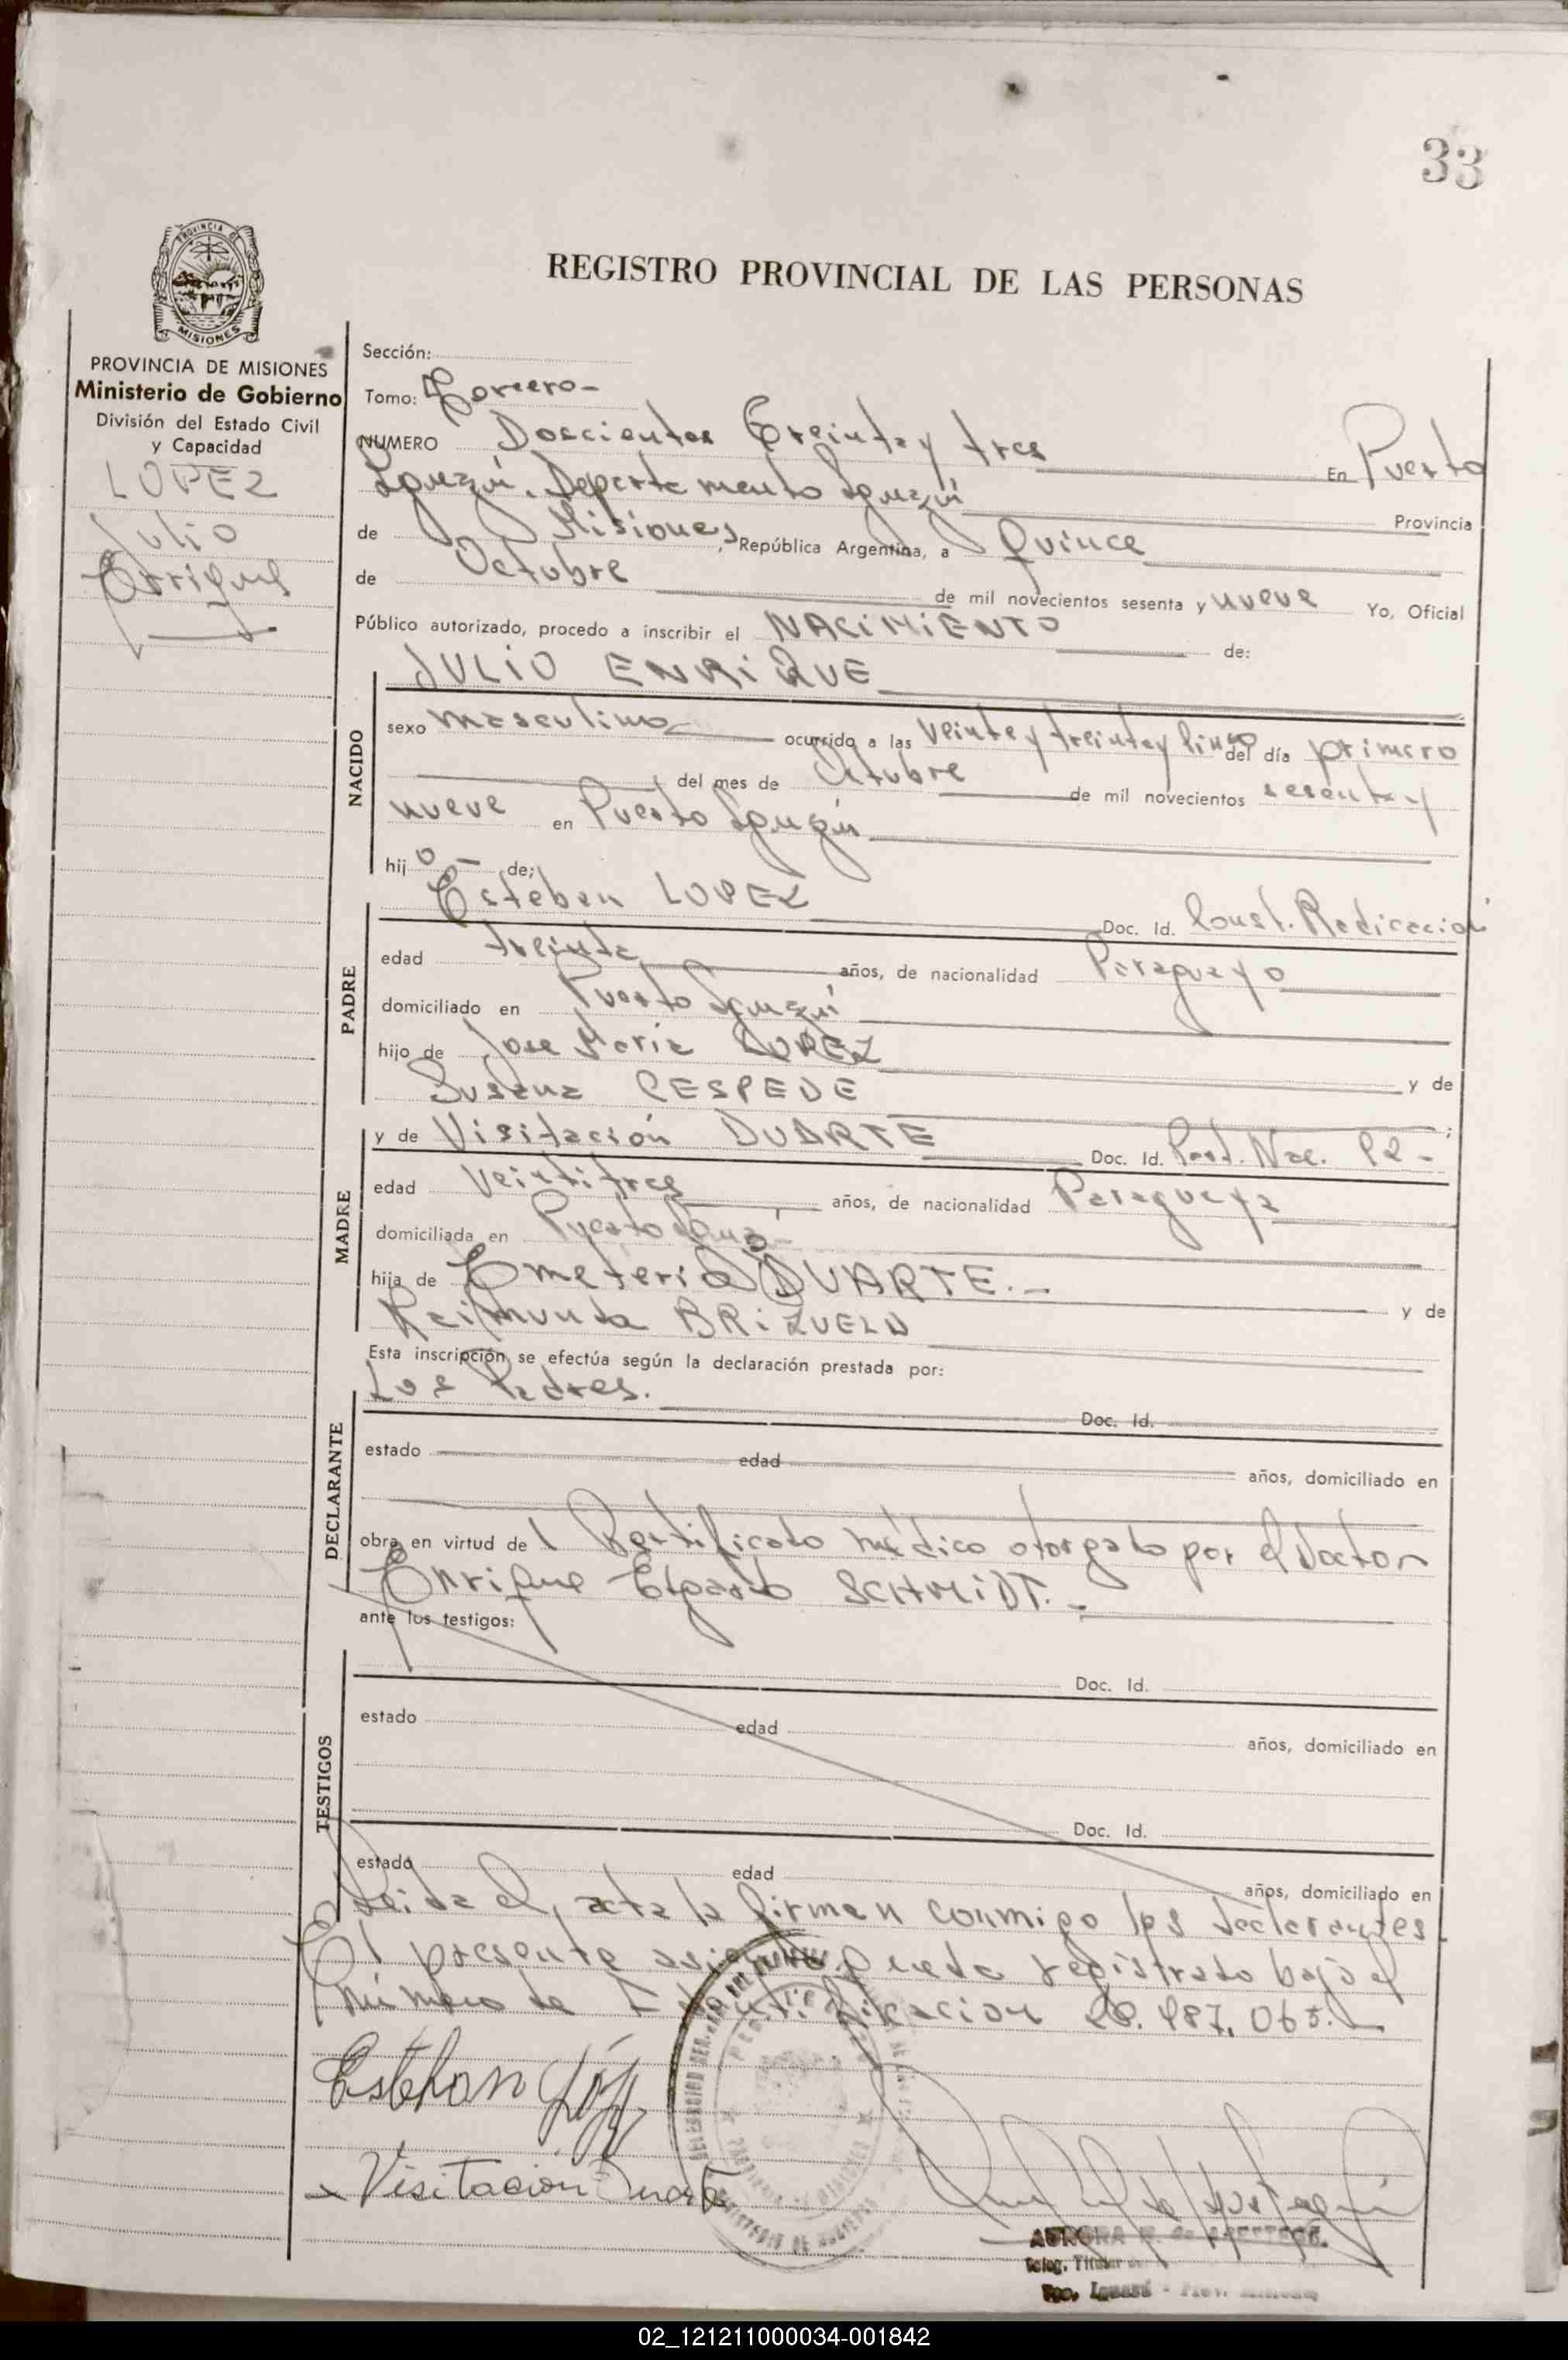 33
PROVINCIA DE
MISIONES
REGISTRO PROVINCIAL DE LAS PERSONAS
PROVINCIA DE MISIONES
Ministerio de Gobierno
División del Estado Civil
y Capacidad
LOPEZ
Julio
Enrique
Sección:
Tomo: Tercero-
NUMERO Doscientos Treinta y tres En Puerto
Iguazú, Departamento Iguazú Provincia
de Misiones, República Argentina, a Quince
de Octubre de mil novecientos sesenta y nueve Yo, Oficial
Público autorizado, procedo a inscribir el NACIMIENTO de:
NACIDO
JULIO ENRIQUE
sexo masculino ocurrido a las veinte y treinta y cinco del día primero
del mes de Octubre de mil novecientos sesenta y
nueve en Puerto Iguazú
hijo - de;
PADRE
Esteban LOPEZ Doc. Id. Const. Radicación
edad treinta años, de nacionalidad Paraguayo
domiciliado en Puerto Iguazú
hijo de Jose Maria LOPEZ y de
Susana CESPEDE
MADRE
y de Visitación DUARTE Doc. Id. Part. Nac. 92-
edad veintitres años, de nacionalidad Paraguaya
domiciliada en Puerto Iguazú
hija de Emeteria DUARTE.- y de
Raimunda BRIZUELA
Esta inscripción se efectúa según la declaración prestada por:
DECLARANTE
Los Padres. Doc. Id.
estado edad años, domiciliado en
obra en virtud del Certificado médico otorgado por el Doctor
Enrique Edgardo SCHMIDT.-
ante los testigos:
TESTIGOS
Doc. Id.
estado edad años, domiciliado en
Doc. Id.
estado edad años, domiciliado en
Leida el acta la firman conmigo los declarantes
El presente asiento queda registrado bajo el
número de Identificacion 20.987.065.
Esteban López
x Visitación Duarte
AURORA
Deleg. Titular
Pto. Iguazú - Prov.
02_121211000034-001842